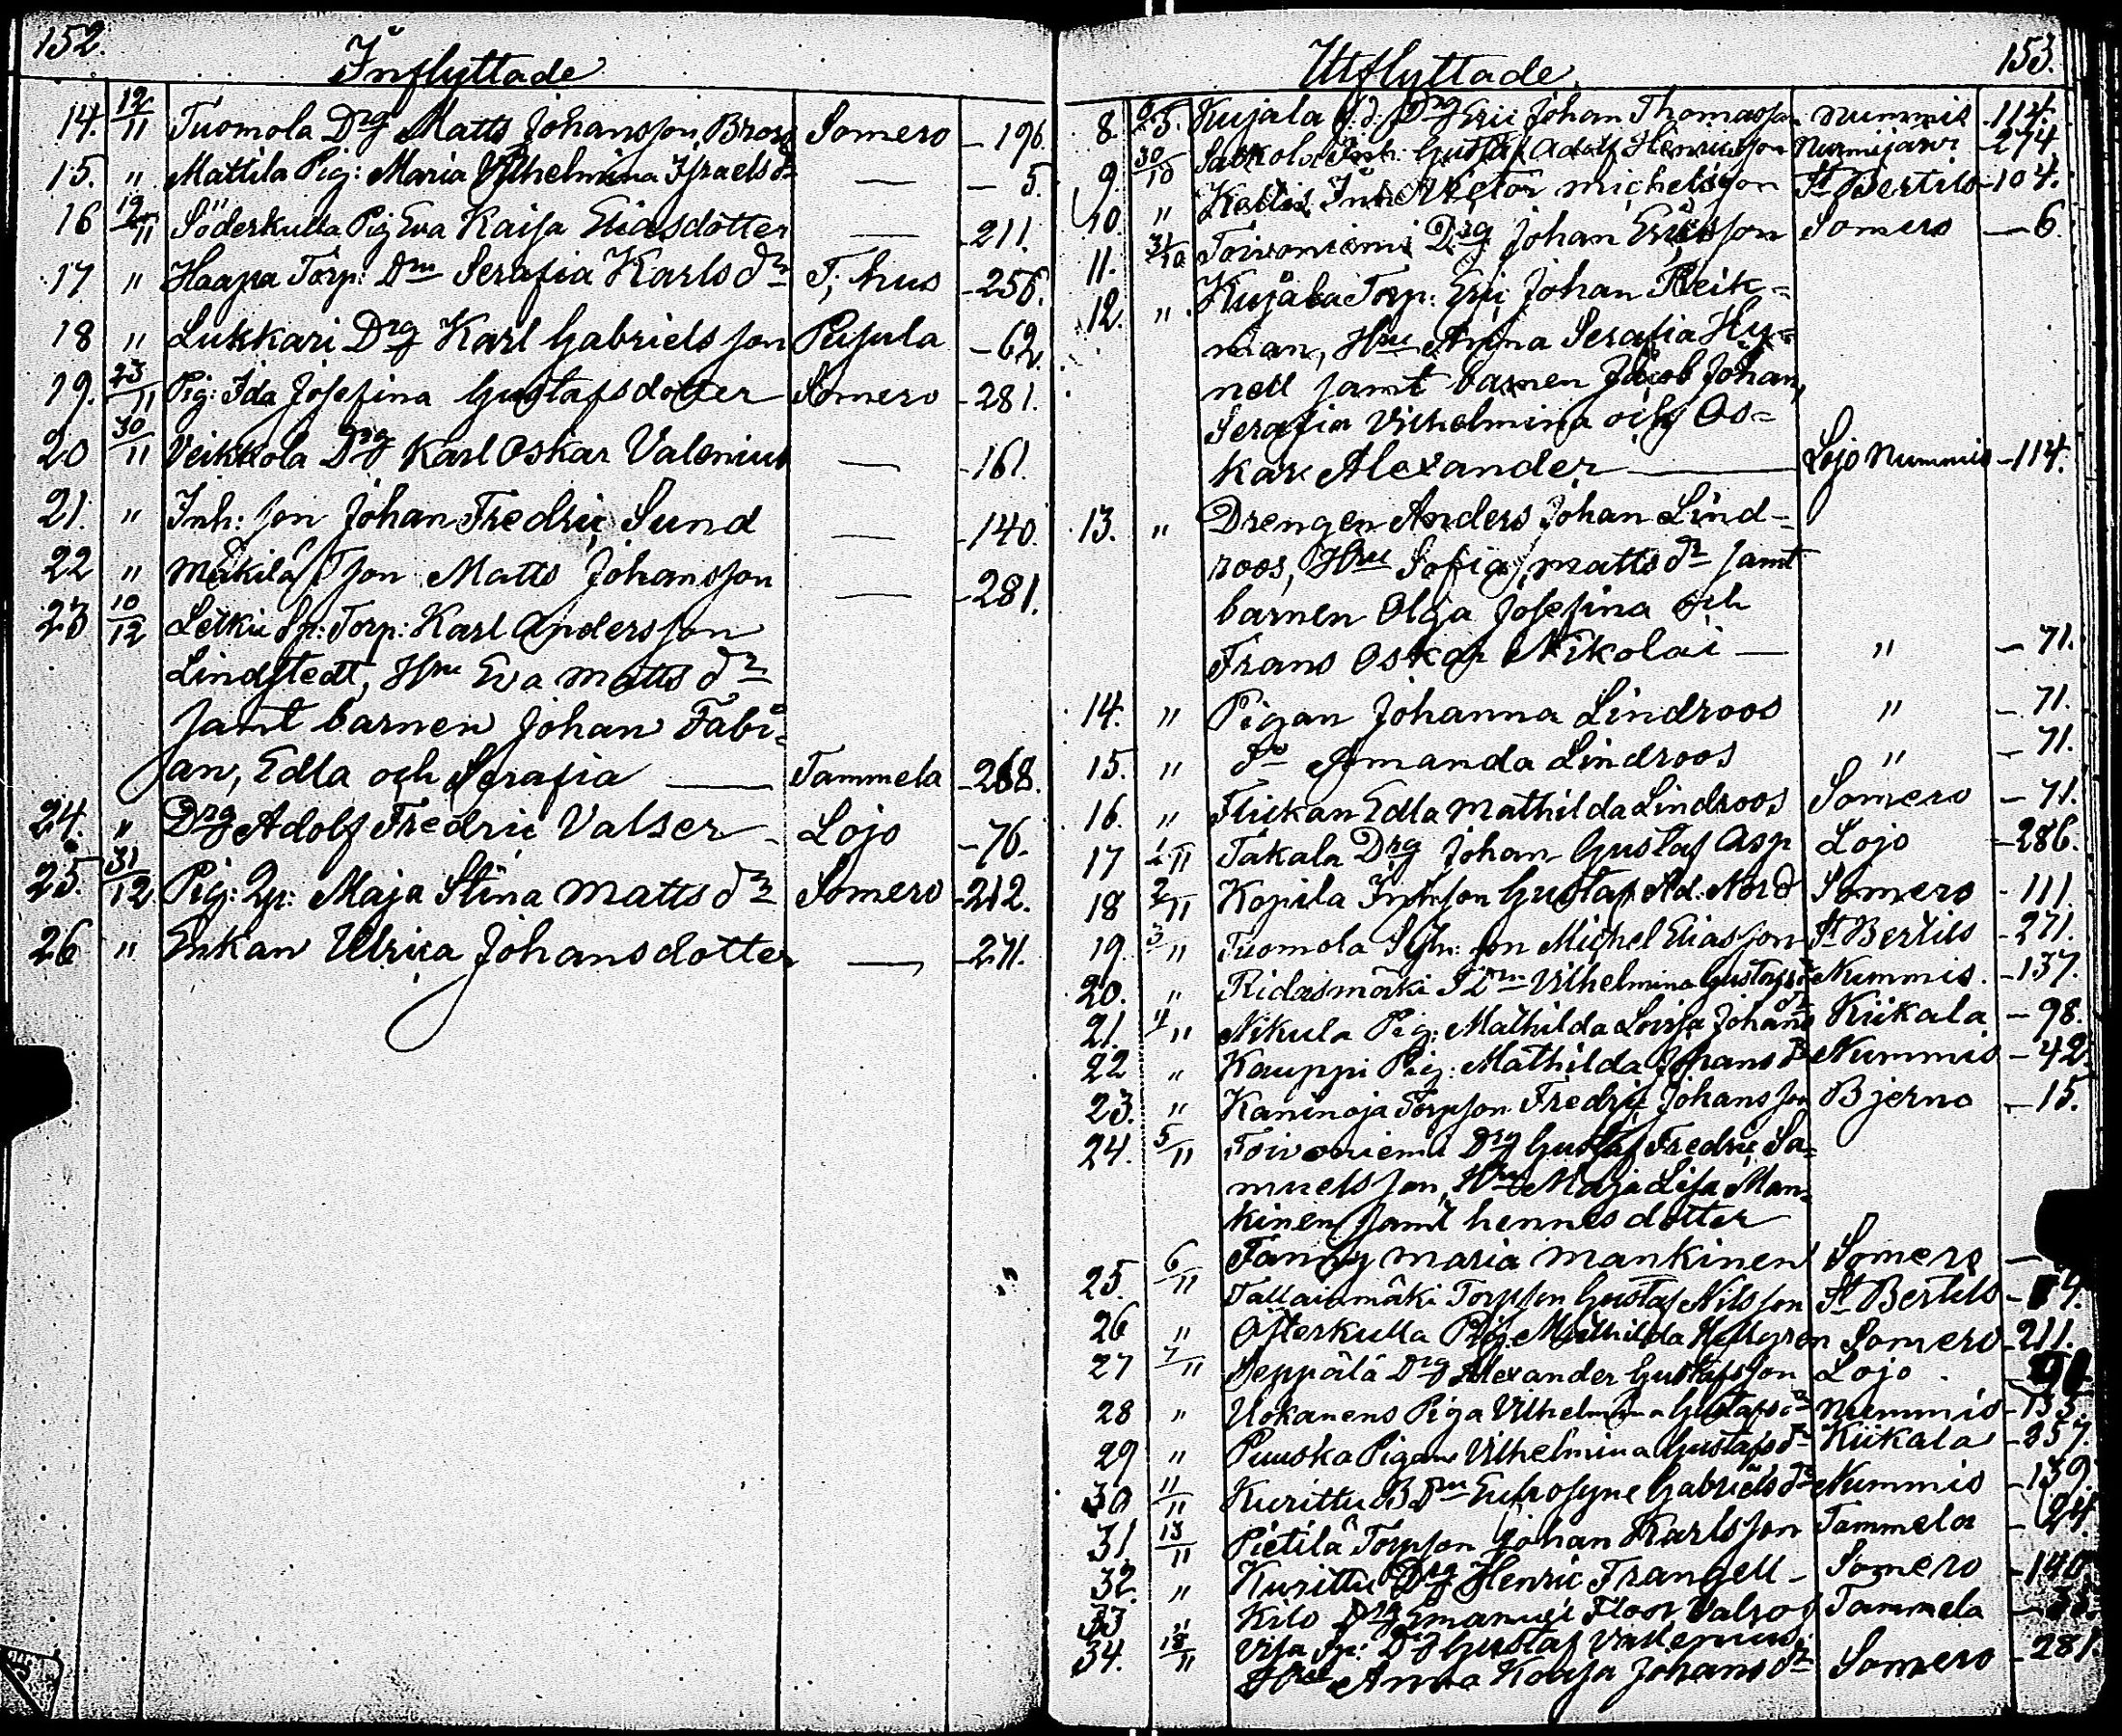 152.
Inflyttade
14. 12/11 Tuomola Drg Matts Johansson Bross Somero - 196.
15. " Mattila Pig: Maria Vilhelmina Israelsdr — - 5.
16 19/11 Söderkulla Pig Eva Kaisa Eliasdotter — - 211.
17 " Haapa Torp: Dtn Serafia Karlsdr T, hus - 256.
18 " Lukkari Drg Karl Gabrielsson Pusula - 62.
19. 23/11 Pig: Ida Josefina Gustafsdotter Somero - 281.
20 30/11 Veikkola Drg Karl Oskar Valenius — - 161.
21. " Inh: son Johan Fredric Sund — - 140.
22 " Mäkilä Tson Matts Johansson — - 281.
23 10/12 Letku Sp: Torp: Karl Andersson
Lindstedt, Hru Eva Mattsdr
samt barnen Johan Fabi-
an, Edla och Serafia — Tammela - 268.
24. " Drg Adolf Fredric Valser - Lojo - 76.
25. 31/12 Pig: Maja Stina Mattsdr Somero - 212.
26 " Enkan Ulrica Johansdotter — - 271.
153.
Utflyttade.
8. Kujala Drg Eric Johan Thomasson Nummis - 114.
9. 30/10 Inh: Gustaf Adolf Henricsson Nurmijärvi - 274
10. " Inh Victor Michelsson St Bertils - 104.
11. 31/10 Toivoniemi Drg Johan Ericsson Somero - 6.
12. " Kujala Torp: Eric Johan Reik-
man, Hru Anna Serafia Hy-
nell samt barnen Jacob Johan,
Serafia Vilhelmina och Os-
kar Alexander — Lojo Nummis - 114.
13. " Drengen Anders Johan Lind-
roos, Hru Sofia Mattsdr samt
barnen Olga Josefina och
Frans Oskar Nikolai — " - 71.
14. " Pigan Johanna Lindroos " - 71.
15. " do Amanda Lindroos " - 71.
16. " Flickan Edla Mathilda Lindroos Somero - 71.
17 1/11 Takala Drg Johan Gustaf Asp Lojo - 286.
18 2/11 Kopila Inh son Gustaf Ad: Nord Somero - 111.
19. 3/" Tuomola son Michel Eliasson St Bertils - 271.
20. " Ridasmäki Vilhelmina Gustafsdr Nummis. - 137.
21. 4/" Nikula Pig: Mathilda Lovisa Johansdr Kiikala - 98.
22 " Kauppi Pig: Mathilda Johansdr Nummis - 42.
23. " Kaninoja Torpson Fredric Johansson Bjerno - 15.
24. 5/11 Toivoniemi Drg Gustaf Fredric Sa-
muelsson, Hru Maja Lisa Man-
kinen samt hennes dotter
Fanny Maria Mankinen Somero -
25. 6/11 Tallainmäki Torpson Gustaf Nilsson St Bertils
26 " Österkulla Pig: Mathilda Hellgren Somero - 211.
27 7/11 Seppälä Drg Alexander Gustafsson Lojo
28 " Uokanens Piga Vilhelmina Gustafsdr Nummis - 133
29 " Puuska Pigan Vilhelmina Gustafsdr Kiikala - 257.
30 11/11 Kurittu B Dtn Eufrosyne Gabrielsdr Nummis - 139.
31 13/11 Pietilä Torpson Johan Karlsson Tammela - 24.
32. " Kurittu Drg Henric Frangell - Somero - 140
33 " Kilo Drg Emanuel Tammela
34. 18/11 Visa Sp: Drg Gustaf Vallenius,
Hru Anna Kajsa Johansdr Somero - 281.